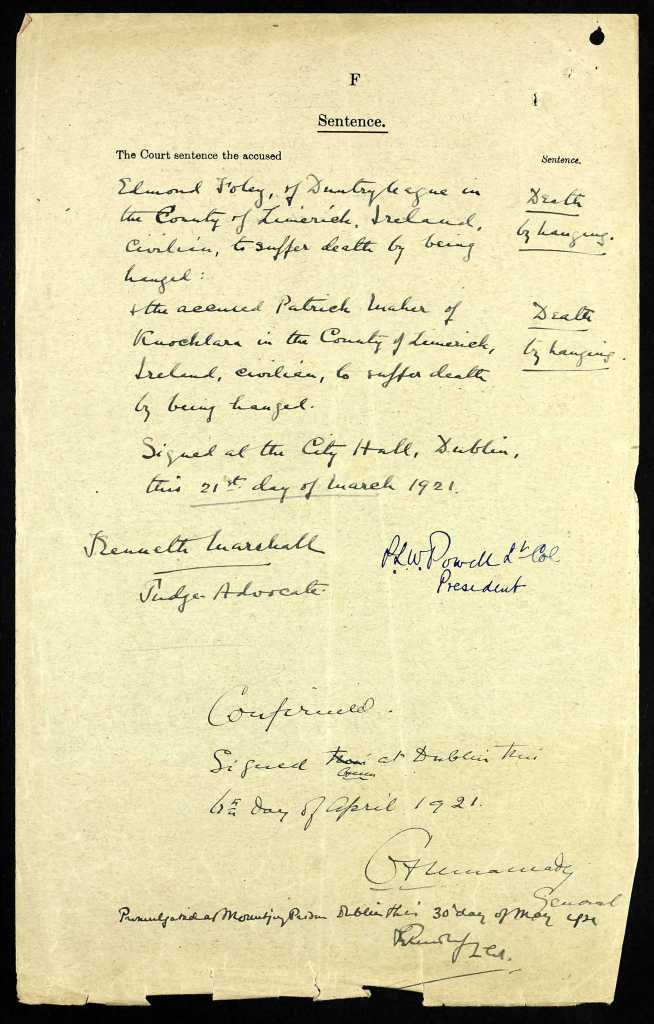 F
Sentence.
The Court sentence the accused
Sentence.
Edmond Foley, of Duntryleague in
the County of Limerick, Ireland,
civilian, to suffer death by being
hanged:
Death
by hanging.
& the accused Patrick Maher of
Knocklara in the County of Limerick,
Ireland, civilian, to suffer death
by being hanged.
Death
by hanging.
Signed at the City Hall, Dublin,
this 21st day of March 1921.
Kenneth Marshall
Judge-Advocate
P.L.W. Powell Lt Col
President
Confirmed.
Signed at Dublin this
6th day of April 1921.
General
Promulgated at Mountjoy Prison Dublin this 30th day of May 1921